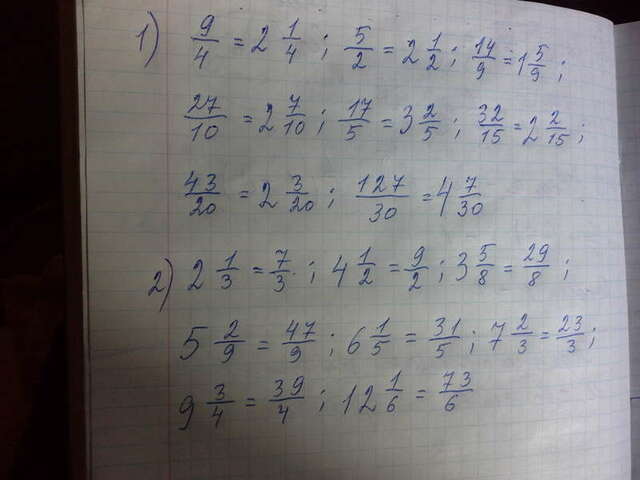 1) 9/4 = 2 1/4 ; 5/2 = 2 1/2 ; 14/9 = 1 5/9 ;
27/10 = 2 7/10 ; 17/5 = 3 2/5 ; 32/15 = 2 2/15 ;
43/20 = 2 3/20 ; 127/30 = 4 7/30
2) 2 1/3 = 7/3 . ; 4 1/2 = 9/2 ; 3 5/8 = 29/8 ;
5 2/9 = 47/9 ; 6 1/5 = 31/5 ; 7 2/3 = 23/3 ;
9 3/4 = 39/4 ; 12 1/6 = 73/6